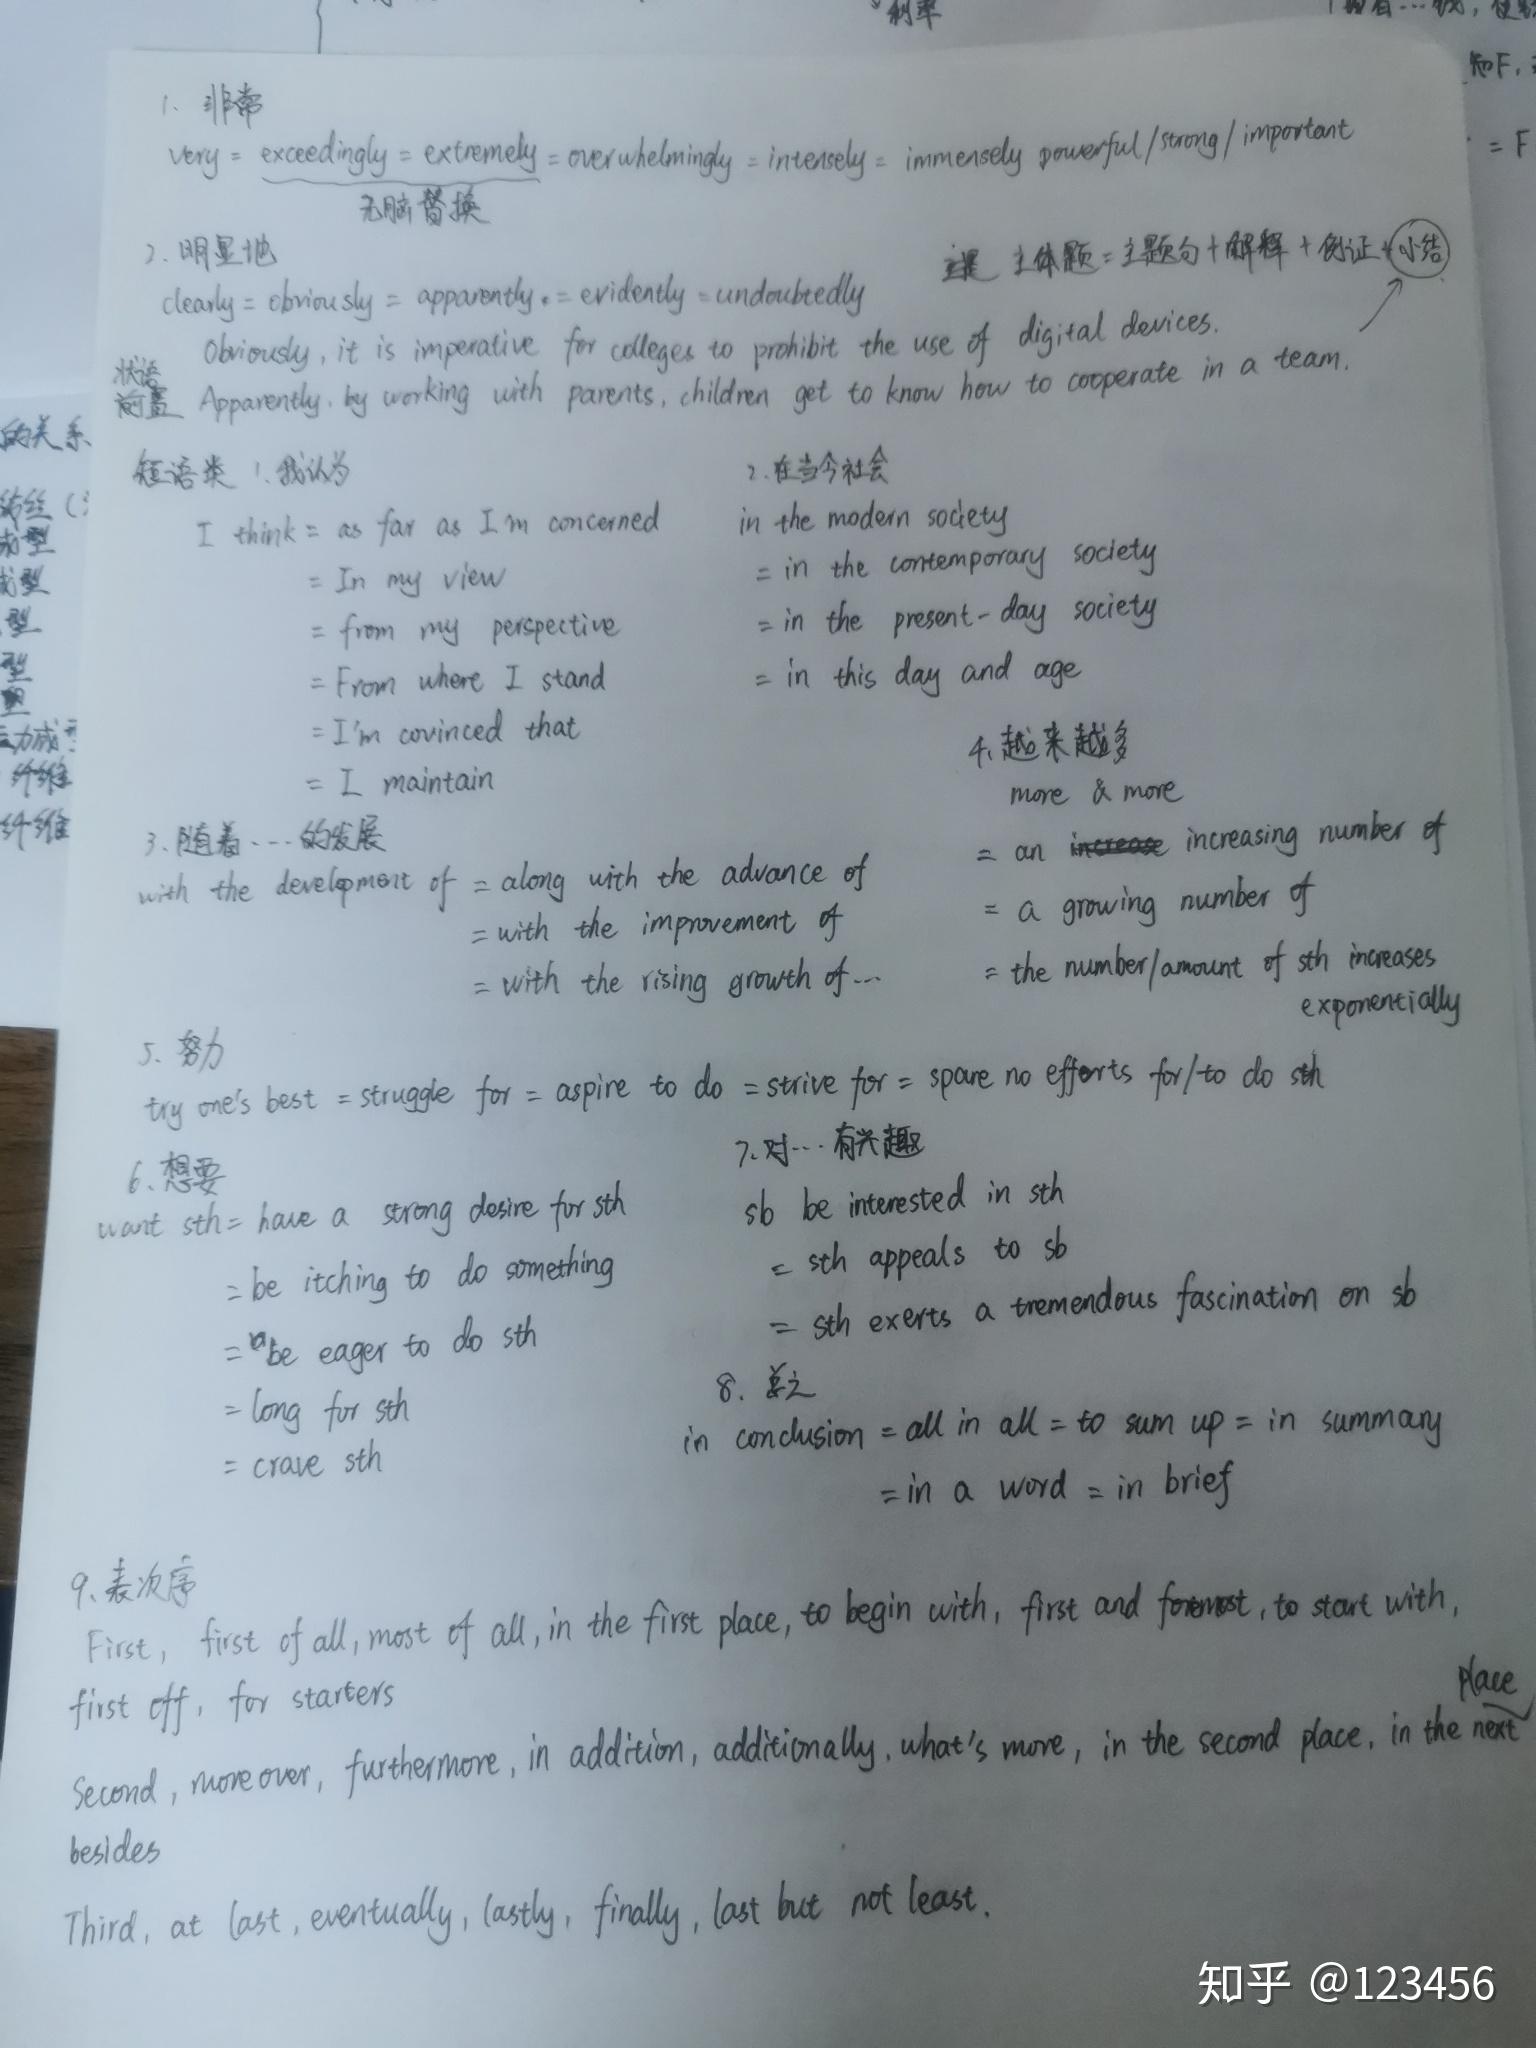 利率
1. 非常
very = exceedingly = extremely = overwhelmingly = intensely = immensely powerful/strong/important
= F
无脑替换
2. 明显地
主体题 = 主题句 + 解释 + 例证 + 小结
clearly = obviously = apparently. = evidently = undoubtedly
Obviously, it is imperative for colleges to prohibit the use of digital devices.
状语
前置
Apparently, by working with parents, children get to know how to cooperate in a team.
的关系
短语类 1. 我认为
I think = as far as I'm concerned
= In my view
= from my perspective
= From where I stand
= I'm covinced that
= I maintain
2. 在当今社会
in the modern society
= in the contemporary society
= in the present-day society
= in this day and age
成型
型
型
型
纤维
纤维
3. 随着……的发展
with the development of = along with the advance of
= with the improvement of
= with the rising growth of…
4. 越来越多
more & more
= an increase increasing number of
= a growing number of
= the number/amount of sth increases
exponentially
5. 努力
try one's best = struggle for = aspire to do = strive for = spare no efforts for/to do sth
6. 想要
want sth = have a strong desire for sth
= be itching to do something
= be eager to do sth
= long for sth
= crave sth
7. 对…有兴趣
sb be interested in sth
= sth appeals to sb
= sth exerts a tremendous fascination on sb
8. 总之
in conclusion = all in all = to sum up = in summary
= in a word = in brief
9. 表次序
First, first of all, most of all, in the first place, to begin with, first and foremost, to start with,
first off, for starters
place
Second, moreover, furthermore, in addition, additionally, what's more, in the second place, in the next
besides
Third, at last, eventually, lastly, finally, last but not least.
知乎 @123456